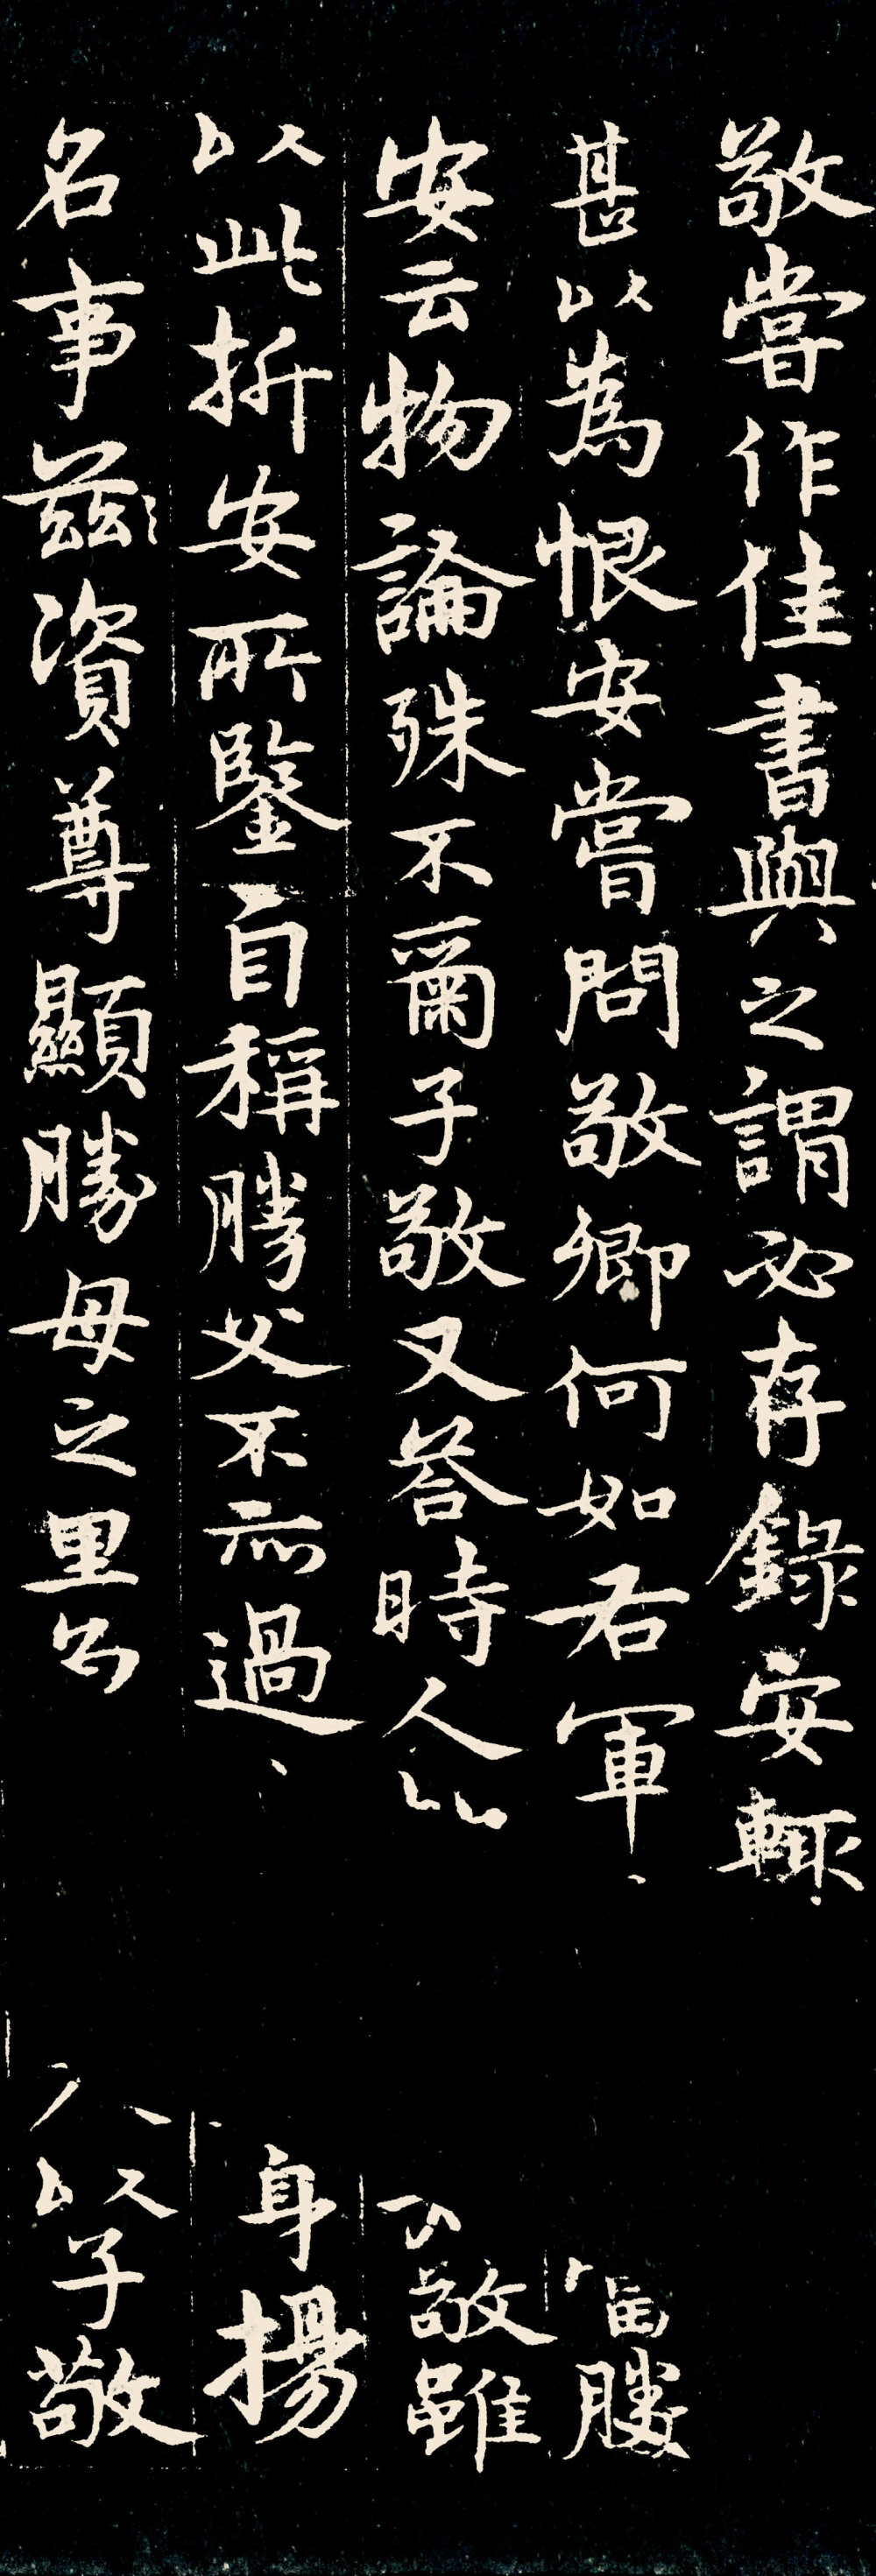 敬嘗作佳書與之謂必存錄安輒
甚以為恨安嘗問敬卿何如右軍 勝
安云物論殊不爾子敬又荅時人 敬雖
以此折安所鑒自稱勝父不亦過 身揚
名事茲資尊顯勝母之里 以子敬